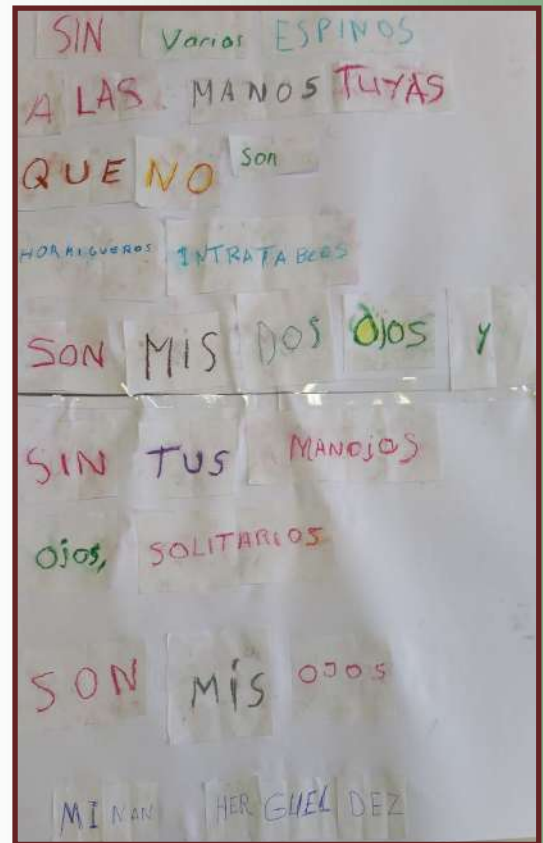 SIN Varios ESPINOS
A LAS MANOS TUYAS
QUE NO Son
HORMIGUEROS INTRATABLES
SON MIS DOS Ojos Y
SIN TUS MANOjOS
Ojos, SOLITARIOS
SON MiS OJOS
MI NAN HER GUEL DEZ